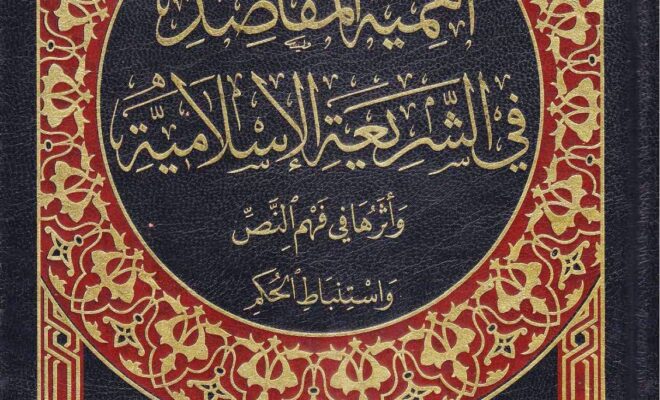 أهمية المقاصد
في الشَّرِيعَةِ الإِسْلَامِيَّةِ
وَأَثَرُهَا فِي فَهْمِ النَّصِّ
وَاسْتِنْبَاطِ الحُكْمِ